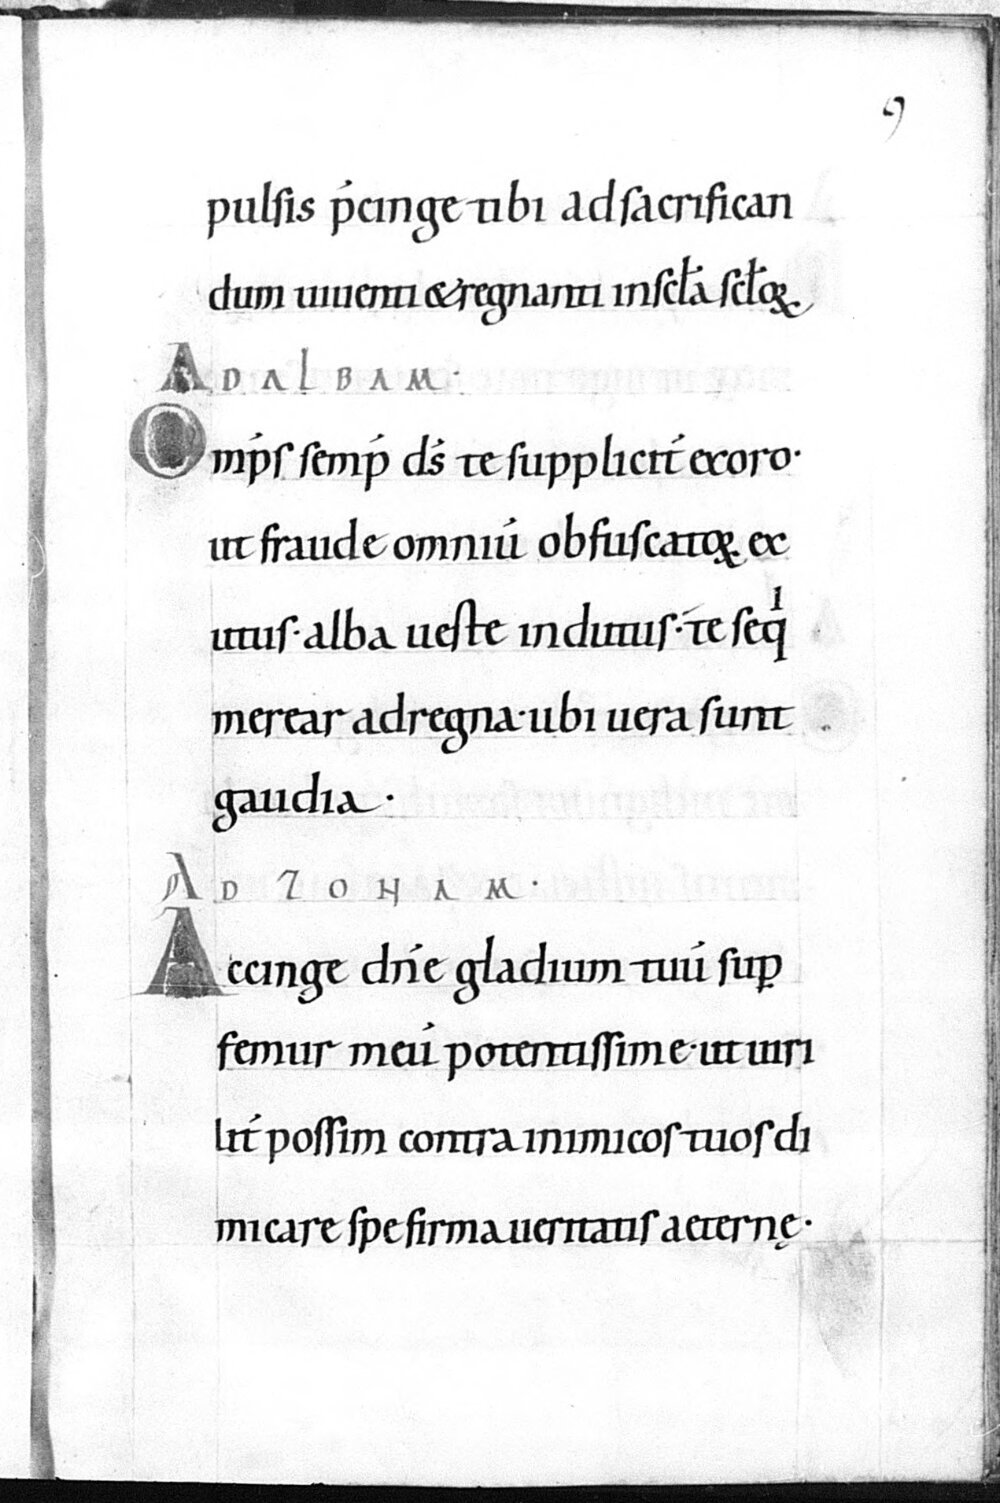 9
pulsis p̄cinge tibi ad sacrifican
dum uiuenti & regnanti in scła scłoꝝ
AD ALBAM·
Omp̄s semp̄ ds̄ te supplicit̄ exoro·
ut fraude omniū obfuscatoꝝ ex
utus· alba ueste indutus· te seqͥ
merear ad regna· ubi uera sunt
gaudia·
AD ZONAM·
Accinge dn̄e gladium tuū suꝑ
femur meū potentissime· ut uiri
lit̄ possim contra inimicos tuos di
micare spe firma ueritatis aeternę·